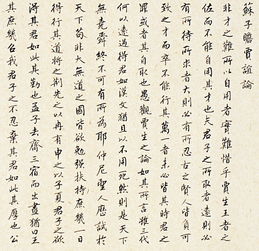 蘇子瞻賈誼論
非才之難所以自用者實難惜乎賈生王者之
佐而不能自用其才也夫君子之所取者遠則必
有所待所就者大則必有所忍古之賢人皆負可
致之才而卒不能行其萬一者未必皆其時君之
罪或者其自取也愚觀賈生之論如其所言雖三代
何以遠過得君如漢文猶且以不用死然則是天下
無堯舜終不可有所為耶仲尼聖人歷試於
天下苟非大無道之國皆欲勉強扶持庶幾一日
得行其道將之荊先之以冉有申之以子夏君子之欲
得其君如此其勤也孟子去齊三宿而出晝猶曰王
其庶幾召我君子之不忍棄其君如此其厚也公